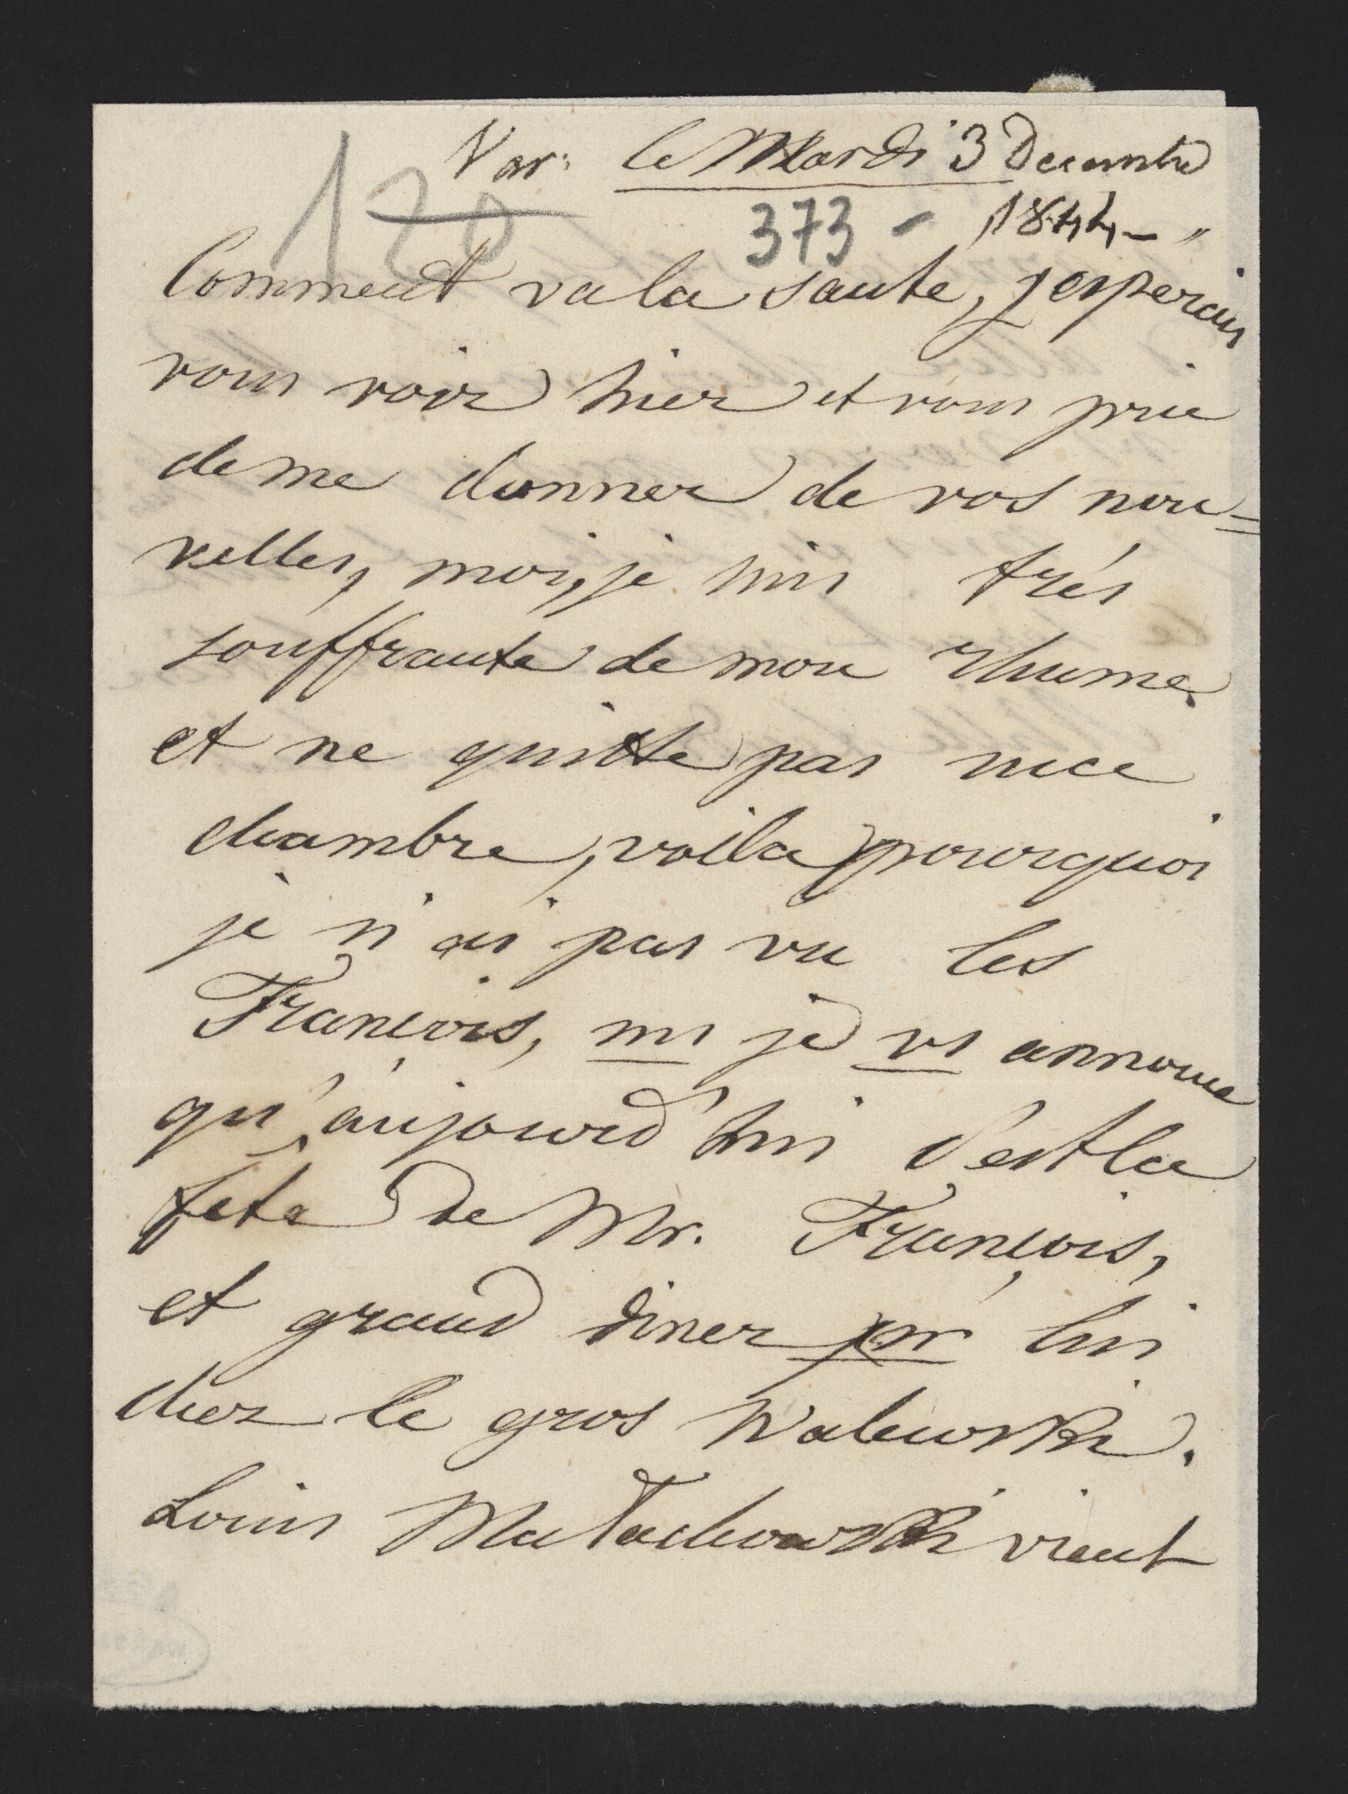 Var: le Mardi 3 Decembre
120 373 - 1844 - "
Comment va la sante, j esperais
vous voir hier et vous prie
de me donner de vos nou=
velles, moi, je suis très
souffrante de mon rhume
et ne quitte pas ma
chambre, voila pourquoi
je n'ai pas vu les
François, ms je vs annonce
qu'aujourd'hui c'est la
fête de Mr. François,
et grand diner pr lui
chez le gros Walewski.
Louis Małachowski vient